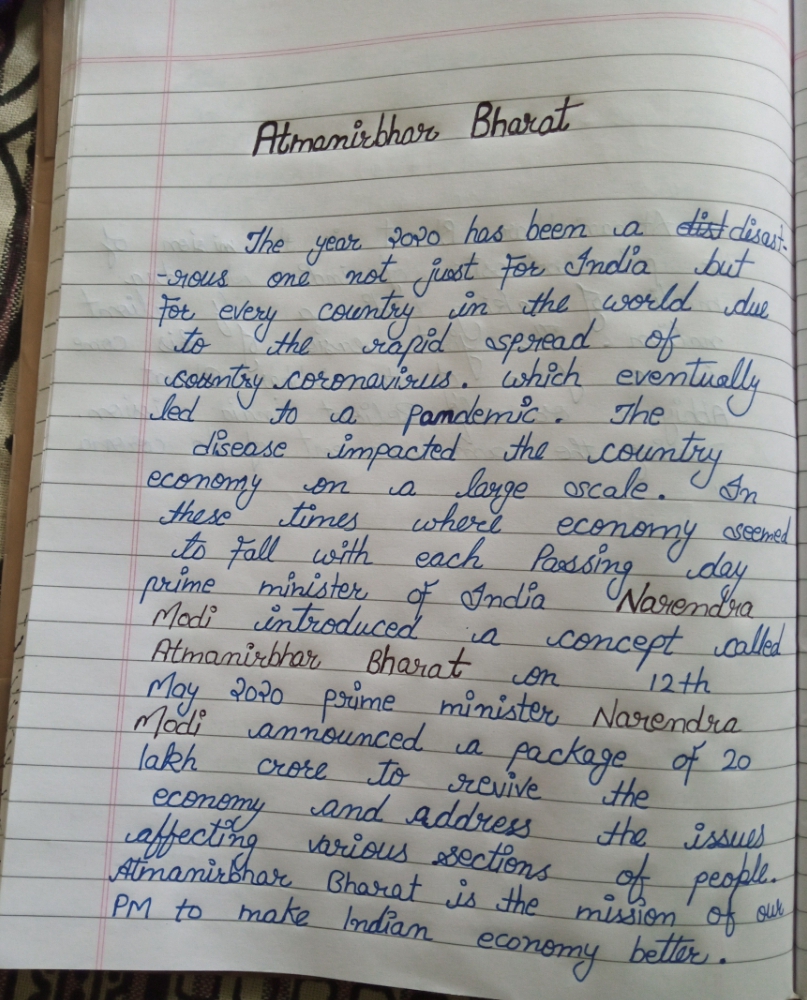 Atmanirbhar Bharat
The year 2020 has been a dist disast-
-rous one not just for India but
for every country in the world due
to the rapid spread of
country coronavirus. which eventually
led to a pandemic. The
disease impacted the country
economy on a large scale. In
these times where economy seemed
to fall with each passing day
prime minister of India Narendra
Modi introduced a concept called
Atmanirbhar Bharat on 12th
May 2020 prime minister Narendra
Modi announced a package of 20
lakh crore to revive the
economy and address the issues
affecting various sections of people.
Atmanirbhar Bharat is the mission of our
PM to make Indian economy better.